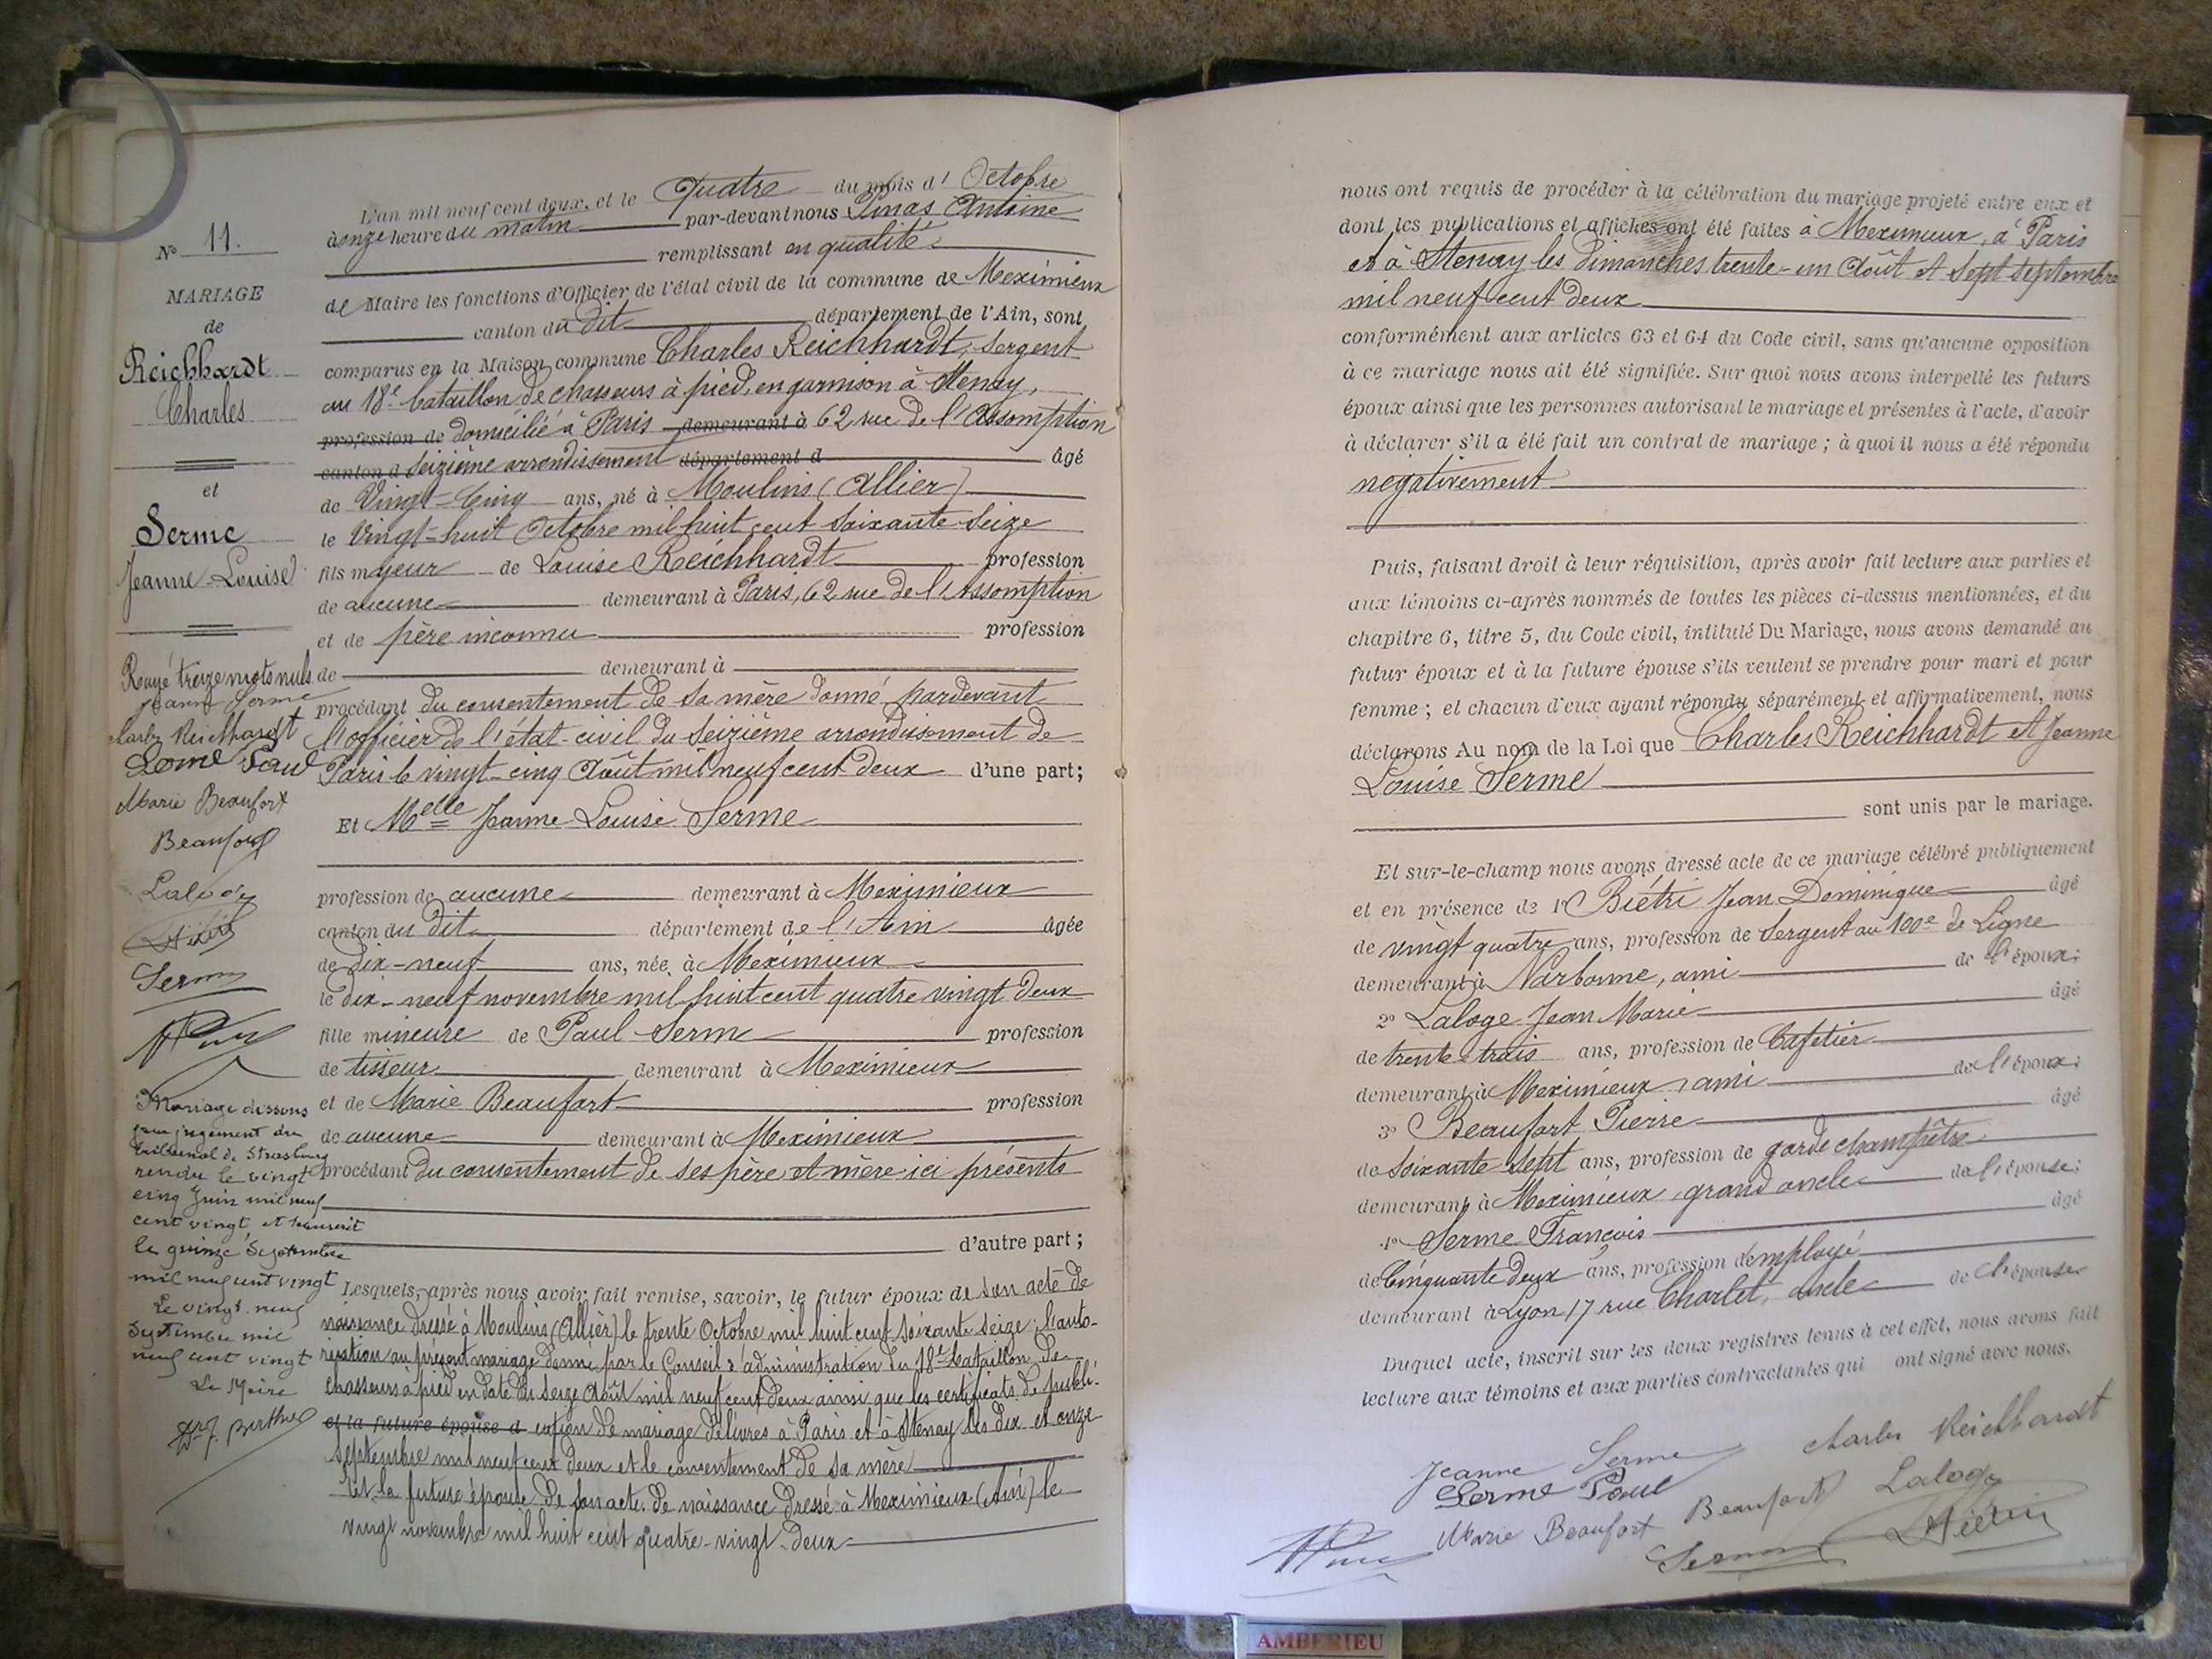 N° 11.
MARIAGE
de
Reichhardt
Charles
et
Serme
Jeanne-Louise
Rayé treize mots nuls
Jeanne Serme
Charles Reichhardt
Serme Paul
Marie Beaufort
Beaufort
Laloge
Serme
Mariage dissous
par jugement du
tribunal de Strasbourg
rendu le vingt
cinq Juin mil neuf
cent vingt, et transcrit
le quinze Septembre
mil neuf cent vingt
Le vingt neuf
Septembre mil
neuf cent vingt
Le Maire
L'an mil neuf cent deux, et le Quatre du mois d'Octobre
à onze heure du matin par-devant nous Pinas Antoine
remplissant en qualité
de Maire les fonctions d'Officier de l'état civil de la commune de Meximieux
canton du dit département de l'Ain, sont
comparus en la Maison commune Charles Reichhardt, sergent
au 18e bataillon de chasseurs à pied, en garnison à Stenay,
profession de domicilié à Paris demeurant à 62 rue de l'Assomption
canton d seizième arrondissement département d âgé
de Vingt-Cinq ans, né à Moulins (Allier)
le Vingt-huit Octobre mil huit cent soixante seize
fils majeur de Louise Reichhardt profession
de aucune demeurant à Paris, 62 rue de l'Assomption
et de père inconnu profession
de demeurant à
procédant du consentement de sa mère donné pardevant
l'officier de l'état-civil du seizième arrondissement de
Paris le vingt-cinq Août mil neuf cent deux d'une part;
Et Melle Jeanne Louise Serme
profession de aucune demeurant à Meximieux
canton du dit département de l'Ain âgée
de dix-neuf ans, née à Meximieux
le dix-neuf novembre mil huit cent quatre vingt deux
fille mineure de Paul Serme profession
de tisseur demeurant à Meximieux
et de Marie Beaufort profession
de aucune demeurant à Meximieux
procédant du consentement de ses père et mère ici présents
d'autre part;
Lesquels, après nous avoir fait remise, savoir, le futur époux de son acte de
naissance dressé à Moulins (Allier) le trente Octobre mil huit cent soixante seize; l'auto-
risation au présent mariage donnée par le Conseil d'administration du 18e bataillon de
chasseurs à pied en date du seize Août mil neuf cent deux ainsi que les certificats de publi-
et la future épouse d cation de mariage délivrés à Paris et à Stenay les dix et onze
septembre mil neuf cent deux et le consentement de sa mère
Et la future épouse de son acte de naissance dressé à Meximieux (Ain) le
vingt novembre mil huit cent quatre-vingt-deux
nous ont requis de procéder à la célébration du mariage projeté entre eux et
dont les publications et affiches ont été faites à Meximieux, à Paris
et à Stenay les dimanches trente-un Août et sept septembre
mil neuf cent deux
conformément aux articles 63 et 64 du Code civil, sans qu'aucune opposition
à ce mariage nous ait été signifiée. Sur quoi nous avons interpellé les futurs
époux ainsi que les personnes autorisant le mariage et présentes à l'acte, d'avoir
à déclarer s'il a été fait un contrat de mariage ; à quoi il nous a été répondu
négativement
Puis, faisant droit à leur réquisition, après avoir fait lecture aux parties et
aux témoins ci-après nommés de toutes les pièces ci-dessus mentionnées, et du
chapitre 6, titre 5, du Code civil, intitulé Du Mariage, nous avons demandé au
futur époux et à la future épouse s'ils veulent se prendre pour mari et pour
femme ; et chacun d'eux ayant répondu séparément et affirmativement, nous
déclarons Au nom de la Loi que Charles Reichhardt et Jeanne
Louise Serme
sont unis par le mariage.
Et sur-le-champ nous avons dressé acte de ce mariage célébré publiquement
et en présence de 1° Biétri Jean Dominique âgé
de vingt quatre ans, profession de Sergent au 100e de Ligne
demeurant à Narbonne, ami de l'époux;
2° Laloge Jean Marie âgé
de trente-trois ans, profession de Cafetier
demeurant à Meximieux, ami de l'époux;
3° Beaufort Pierre âgé
de soixante-sept ans, profession de garde champêtre
demeurant à Meximieux, grand oncle de l'épouse;
4° Serme François âgé
de Cinquante deux ans, profession d'employé
demeurant à Lyon 17 rue Charlet, oncle de l'épouse
Duquel acte, inscrit sur les deux registres tenus à cet effet, nous avons fait
lecture aux témoins et aux parties contractantes qui ont signé avec nous.
Jeanne Serme Charles Reichhardt
Serme Paul
Marie Beaufort Beaufort Laloge
Serme
AMBERIEU